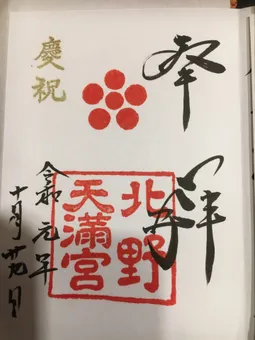 奉拝
慶祝
北野
天満宮
令和元年
十月廿九日